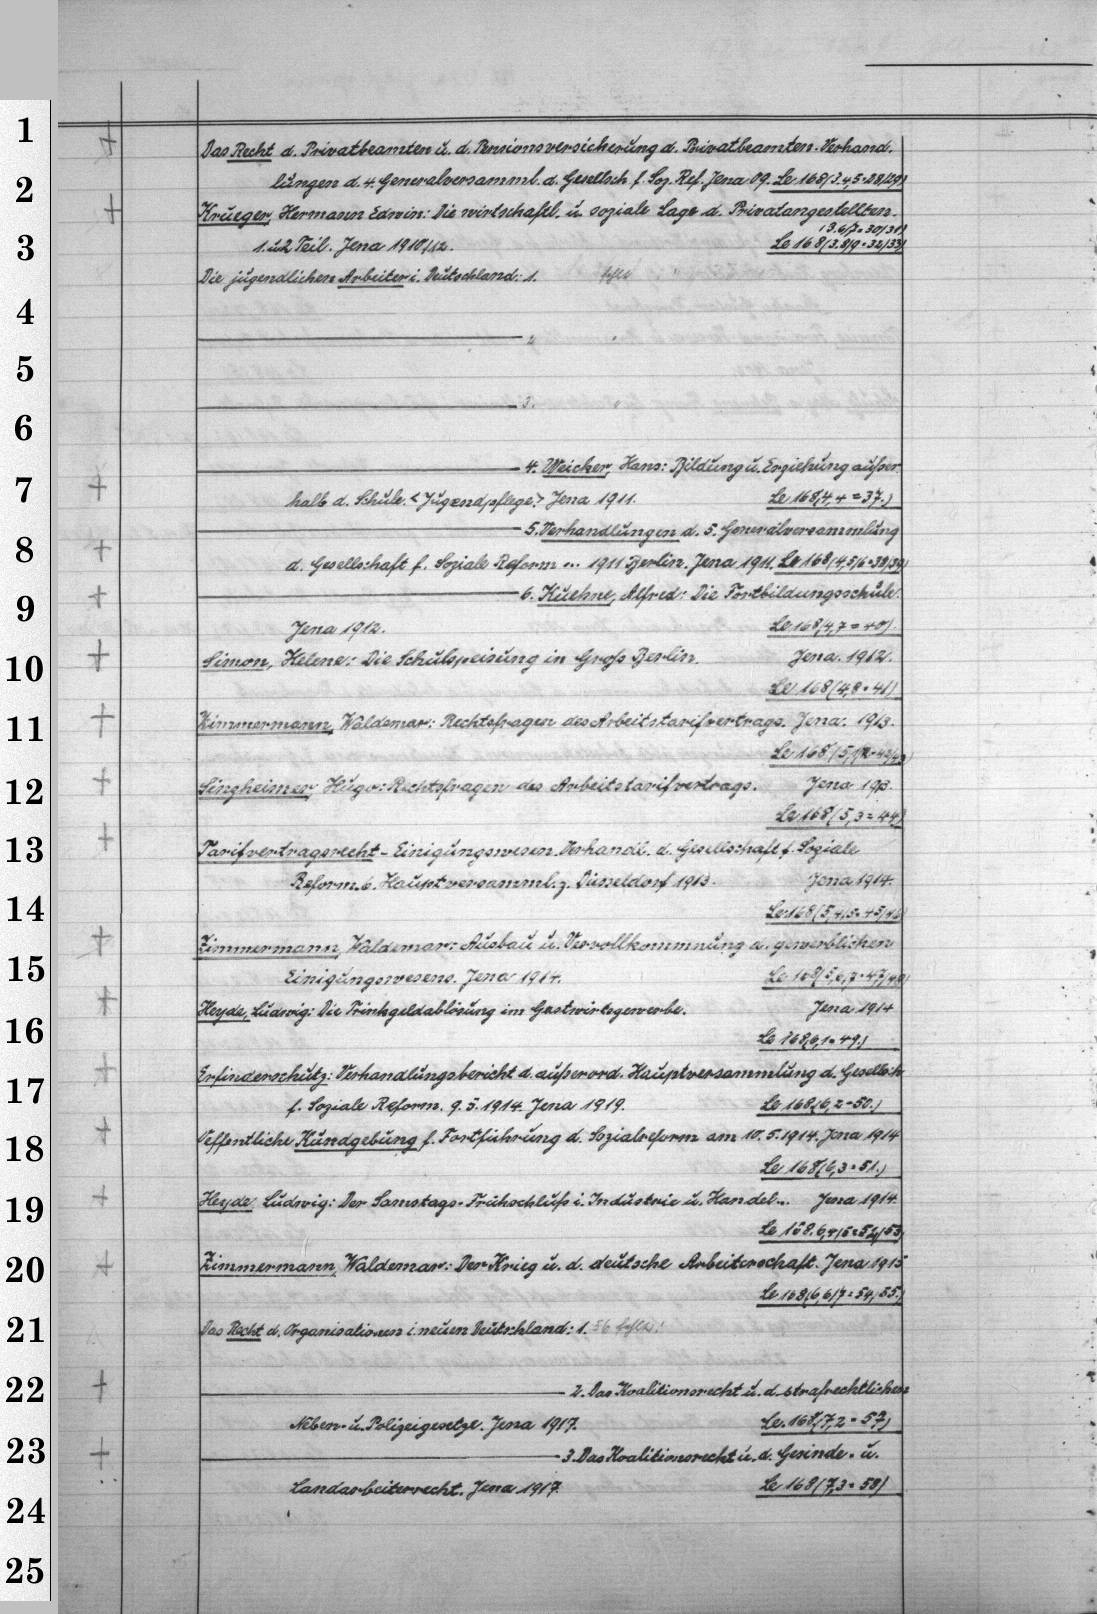 1
Das Recht d. Privatbeamten u. d. Pensionsversicherung d. Privatbeamten. Verhand.
2
lungen d. 4. Generalversamml. d. Gesellsch. f. Soz. Ref. Jena 09. Le 168(3.4,5=28/29)
Krueger, Hermann Edwin: Die wirtschaftl. u. soziale Lage d. Privatangestellten.
(3.6/7=30/31)
3
1. u. 2 Teil. Jena 1910/12. Le 168(3.8/9=32/33)
Die jugendlichen Arbeiter i. Deutschland: 1. fehlt
4
2 "
5
3. "
6
4. Weicker, Hans: Bildung u. Erziehung außer
7
halb d. Schule. <Jugendpflege> Jena 1911. Le 168(4,4=37.)
5. Verhandlungen d. 5. Generalversammlung
8
d. Gesellschaft f. Soziale Reform ... 1911 Berlin. Jena 1911. Le 168(4,5/6=38/39)
6. Kuehne, Alfred: Die Fortbildungsschule.
9
Jena 1912. Le 168(4,7=40).
10
Simon, Helene: Die Schulspeisung in Groß Berlin. Jena. 1912.
Le 168(4,8=41)
11
Zimmermann, Waldemar: Rechtsfragen des Arbeitstarifvertrags. Jena. 1913.
Le 168(5,1/2=42/43)
12
Singheimer, Hugo: Rechtsfragen des Arbeitstarifvertrags. Jena 1913.
Le 168(5,3=44)
13
Tarifvertragsrecht - Einigungswesen. Verhandl. d. Gesellschaft f. Soziale
Reform. 6. Hauptversamml. z. Düsseldorf 1913. Jena 1914.
14
Le 168(5,4,5=45/46)
Zimmermann, Waldemar: Ausbau u. Vervollkommnung d. gewerblichen
15
Einigungswesens. Jena 1914. Le 168(5,6,7=47/48)
Heyde, Ludwig: Die Trinkgeldablösung im Gastwirtsgewerbe. Jena 1914
16
Le 168(6,1=49.)
17
Erfinderschutz: Verhandlungsbericht d. außerord. Hauptversammlung d. Gesellsch.
f. Soziale Reform. 9.5.1914. Jena 1919. Le 168(6,2=50.)
18
Oeffentliche Kundgebung f. Fortführung d. Sozialreform am 10.5.1914. Jena 1914
Le 168(6,3=51.)
19
Heyde, Ludwig: Der Samstags-Frühschluß i. Industrie u. Handel... Jena 1914
Le 168.6,4/5=52/53
20
Zimmermann, Waldemar: Der Krieg u. d. deutsche Arbeiterschaft. Jena 1915
Le 168(6,6/7=54,55.)
21
Das Recht d. Organisationen i. neuen Deutschland: 1. 56 fehlt!
22
2. Das Koalitionsrecht u. d. strafrechtlichen
Neben- u. Polizeigesetze. Jena 1917. Le. 168(7,2=57)
23
3. Das Koalitionsrecht u. d. Gesinde- u.
Landarbeiterrecht. Jena 1917. Le 168(7,3=58)
24
25